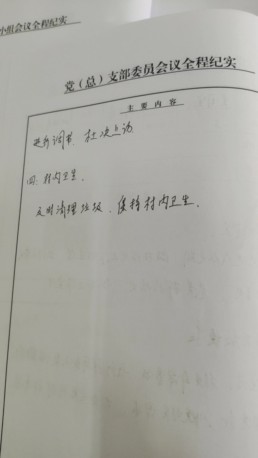 小组会议全程纪实
党（总）支部委员会议全程纪实
主要内容
进行调节，杜次上访
四、村内卫生。
及时清理垃圾，保持村内卫生。